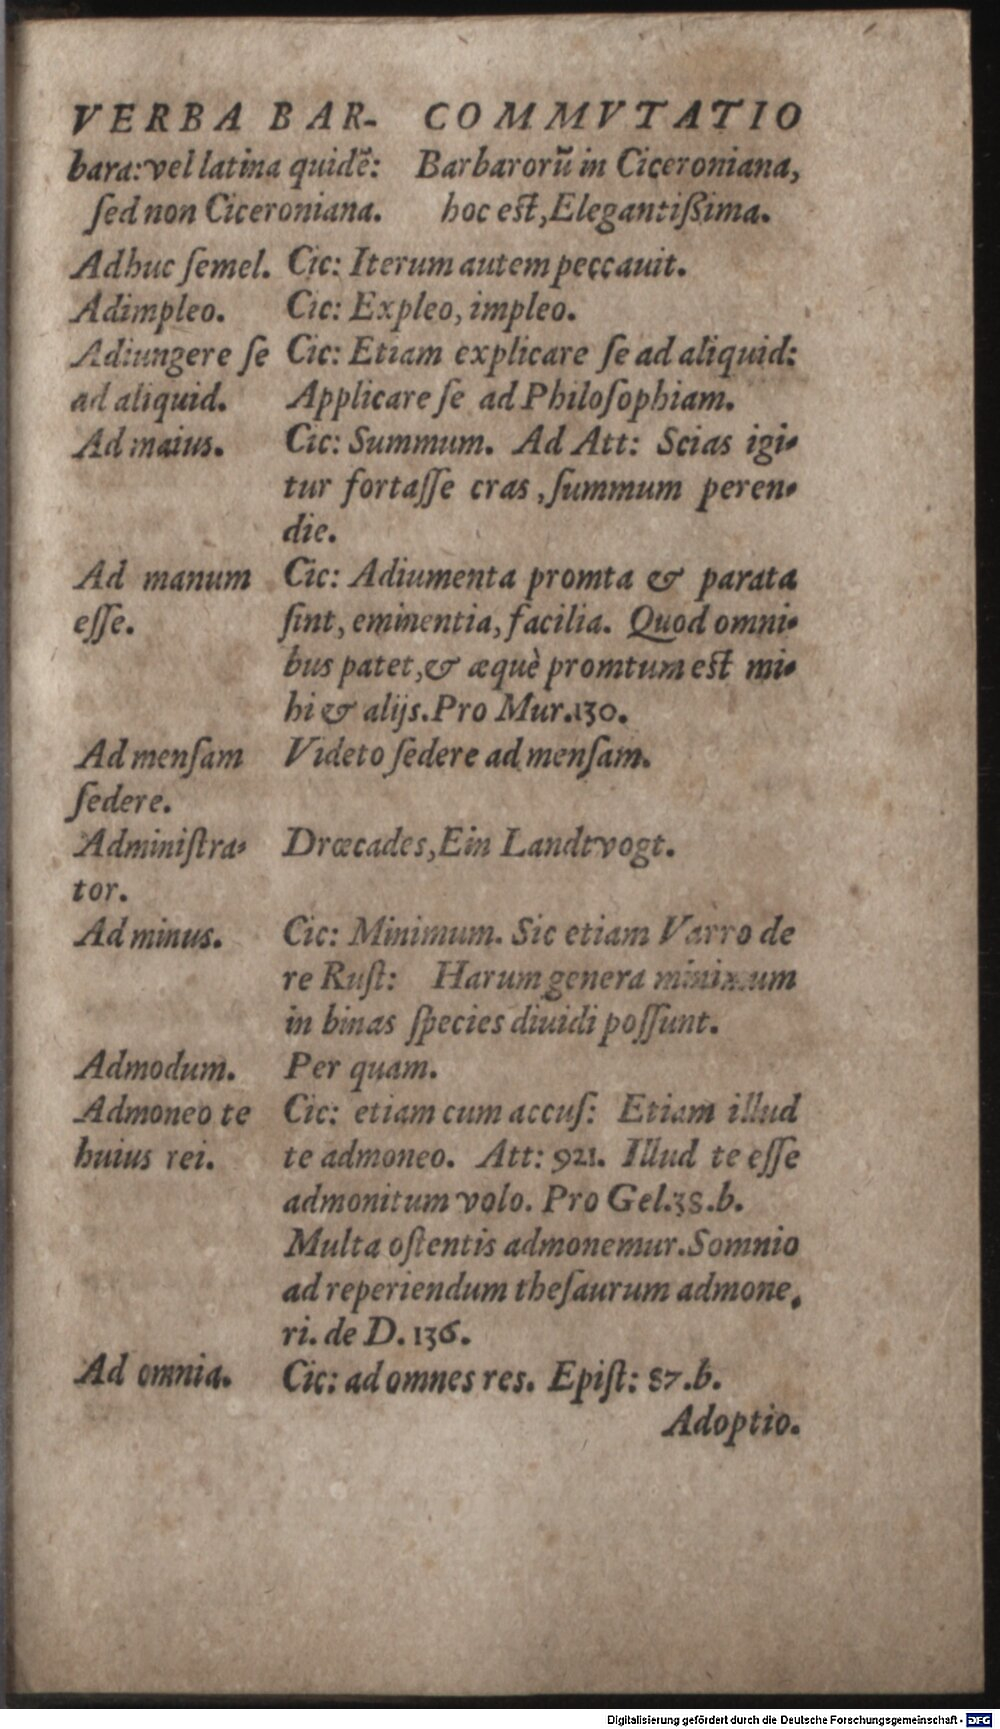 VERBA BAR- COMMVTATIO
bara: vel latina quidē: Barbarorū in Ciceroniana,
ſed non Ciceroniana. hoc eſt, Elegantißima.
Adhuc ſemel. Cic: Iterum autem peccauit.
Adimpleo. Cic: Expleo, impleo.
Adiungere ſe Cic: Etiam explicare ſe ad aliquid:
ad aliquid. Applicare ſe ad Philoſophiam.
Ad maius. Cic: Summum. Ad Att: Scias igi-
tur fortaſſe cras, ſummum peren-
die.
Ad manum Cic: Adiumenta promta & parata
eſſe. ſint, eminentia, facilia. Quod omni-
bus patet, & æquè promtum eſt mi-
hi & alijs. Pro Mur. 130.
Ad menſam Videto ſedere ad menſam.
ſedere.
Adminiſtra- Dræcades, Ein Landtvogt.
tor.
Ad minus. Cic: Minimum. Sic etiam Varro de
re Ruſt: Harum genera minimum
in binas ſpecies diuidi poſſunt.
Admodum. Per quam.
Admoneo te Cic: etiam cum accuſ: Etiam illud
huius rei. te admoneo. Att: 921. Illud te eſſe
admonitum volo. Pro Gel. 38. b.
Multa oſtentis admonemur. Somnio
ad reperiendum theſaurum admone,
ri. de D. 136.
Ad omnia. Cic: ad omnes res. Epiſt: 87. b.
Adoptio.
Digitalisierung gefördert durch die Deutsche Forschungsgemeinschaft - DFG